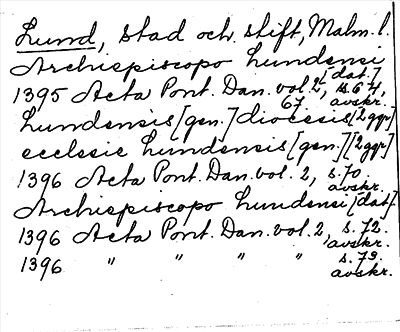 Lund, stad och stift, Malm. l.
Archiepiscopo lundensi [dat.]
1395 Acta Pont. Dan. vol. 2, s. 64, 67. avskr.
lundensis [gen.] diocesis [2 ggr]
ecclesie lundensis [gen.] [2 ggr]
1396 Acta Pont. Dan. vol. 2, s. 70 avskr.
Archiepiscopo lundensi [dat].
1396 Acta Pont. Dan. vol. 2, s. 72. avskr.
1396 " " " " s. 73. avskr.